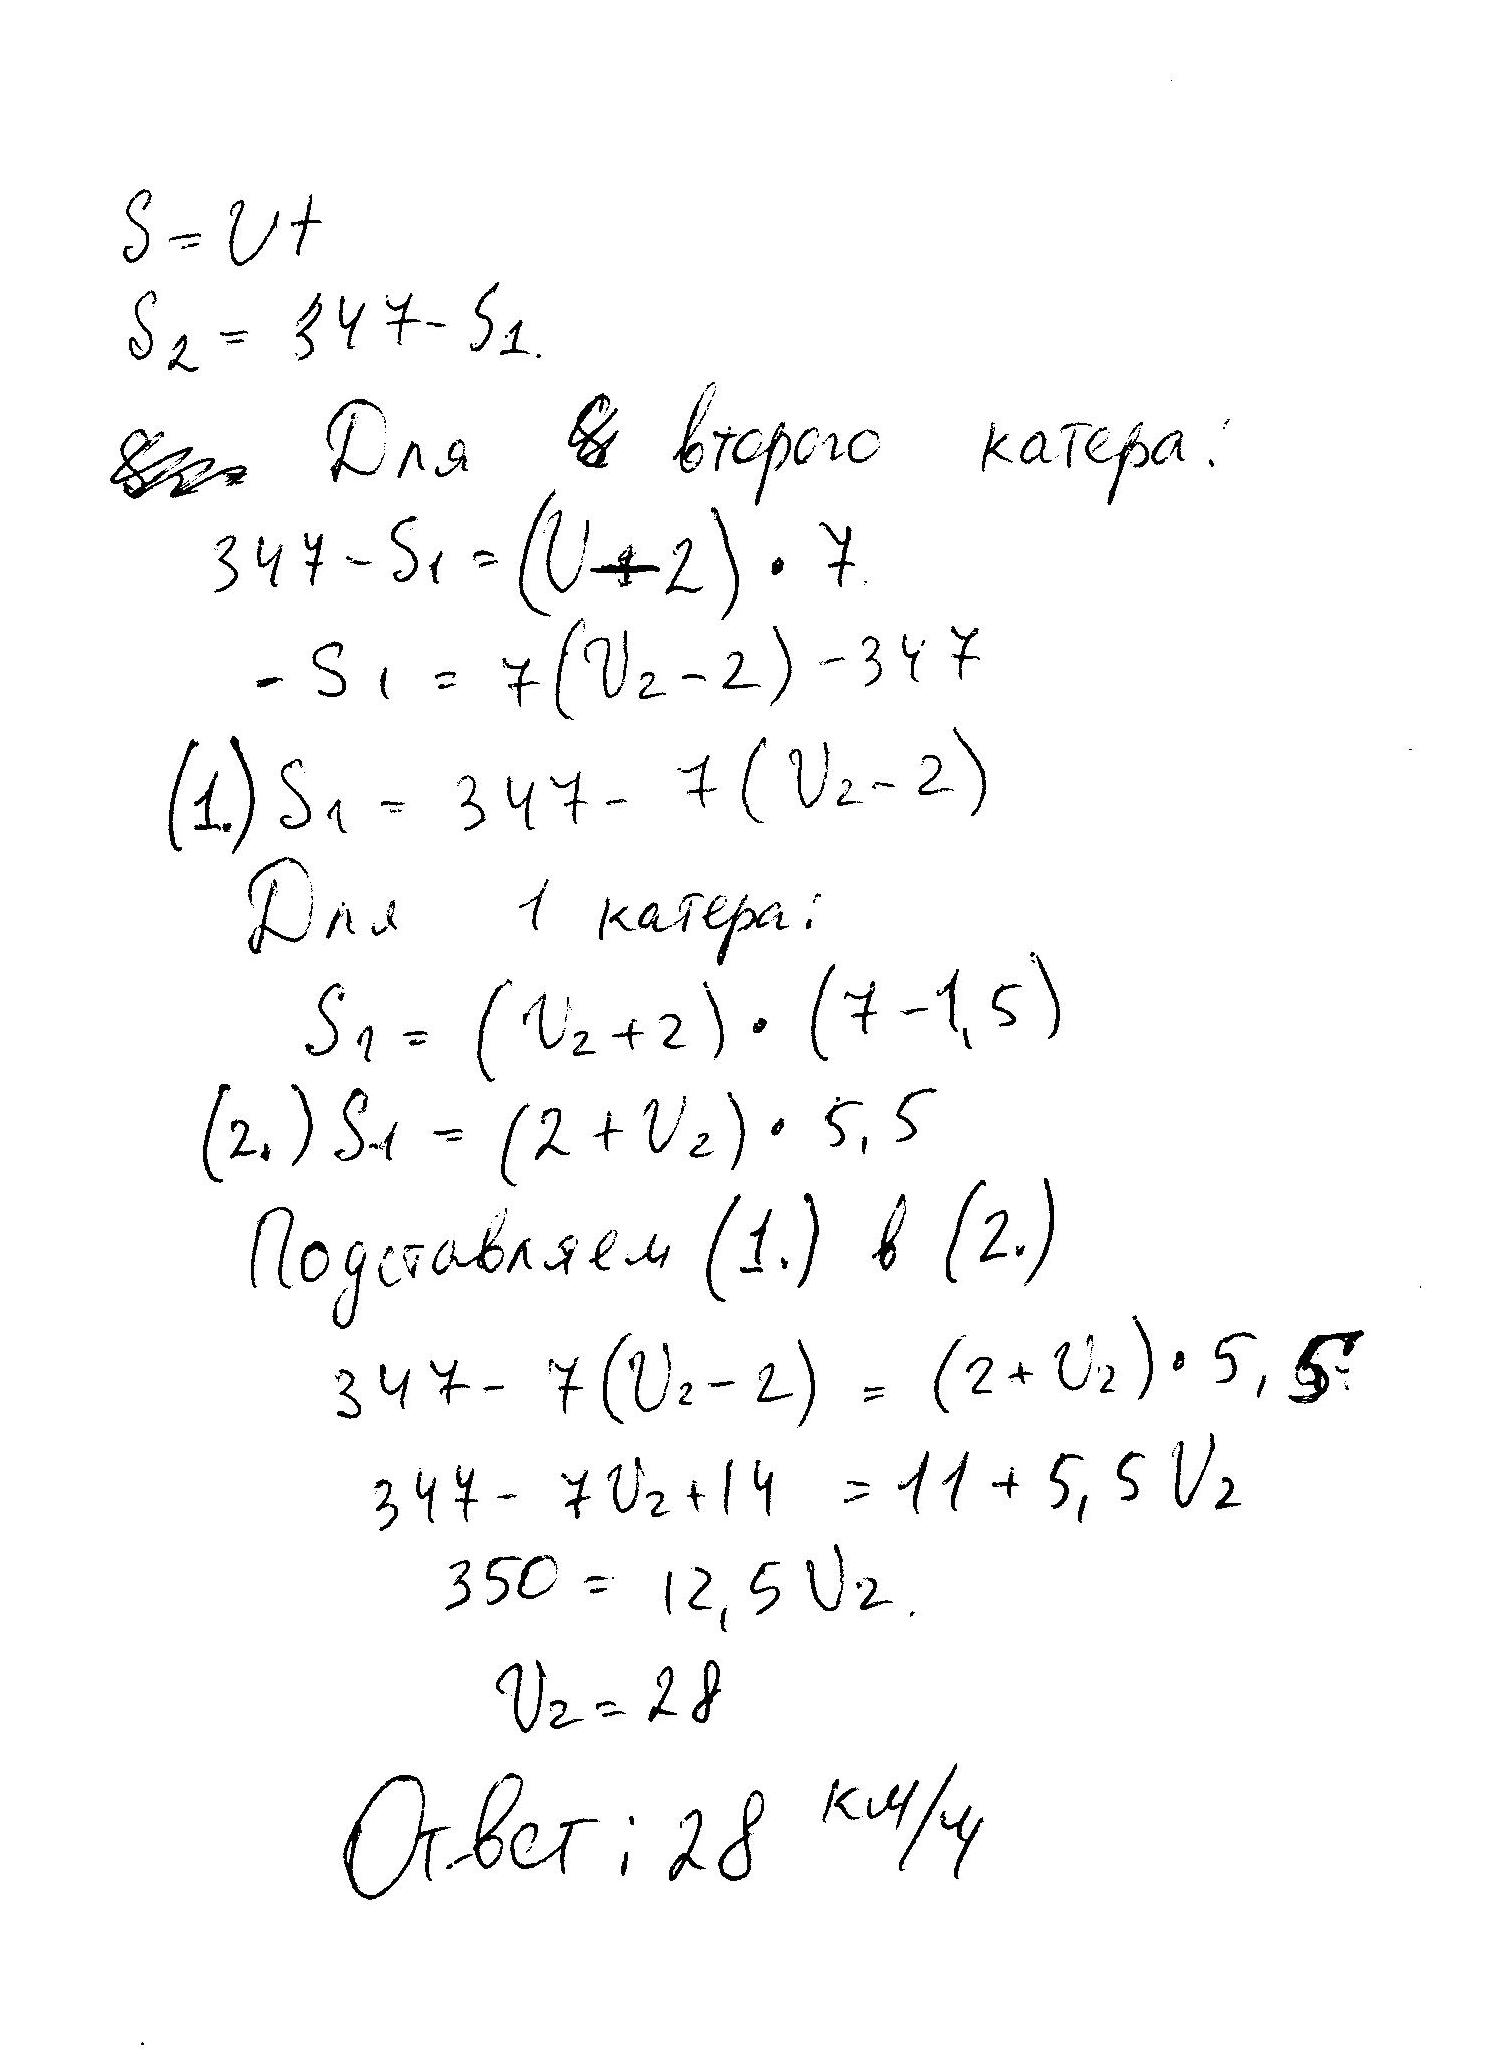 S = Vt
S2 = 347 - S1.
Для второго катера:
347 - S1 = (V - 2) • 7.
- S1 = 7(V2 - 2) - 347
(1.) S1 = 347 - 7(V2 - 2)
Для 1 катера:
S1 = (V2 + 2) • (7 - 1,5)
(2.) S1 = (2 + V2) • 5,5
Подставляем (1.) в (2.)
347 - 7(V2 - 2) = (2 + V2) • 5,5
347 - 7V2 + 14 = 11 + 5,5V2
350 = 12,5V2.
V2 = 28
Ответ: 28 км/ч